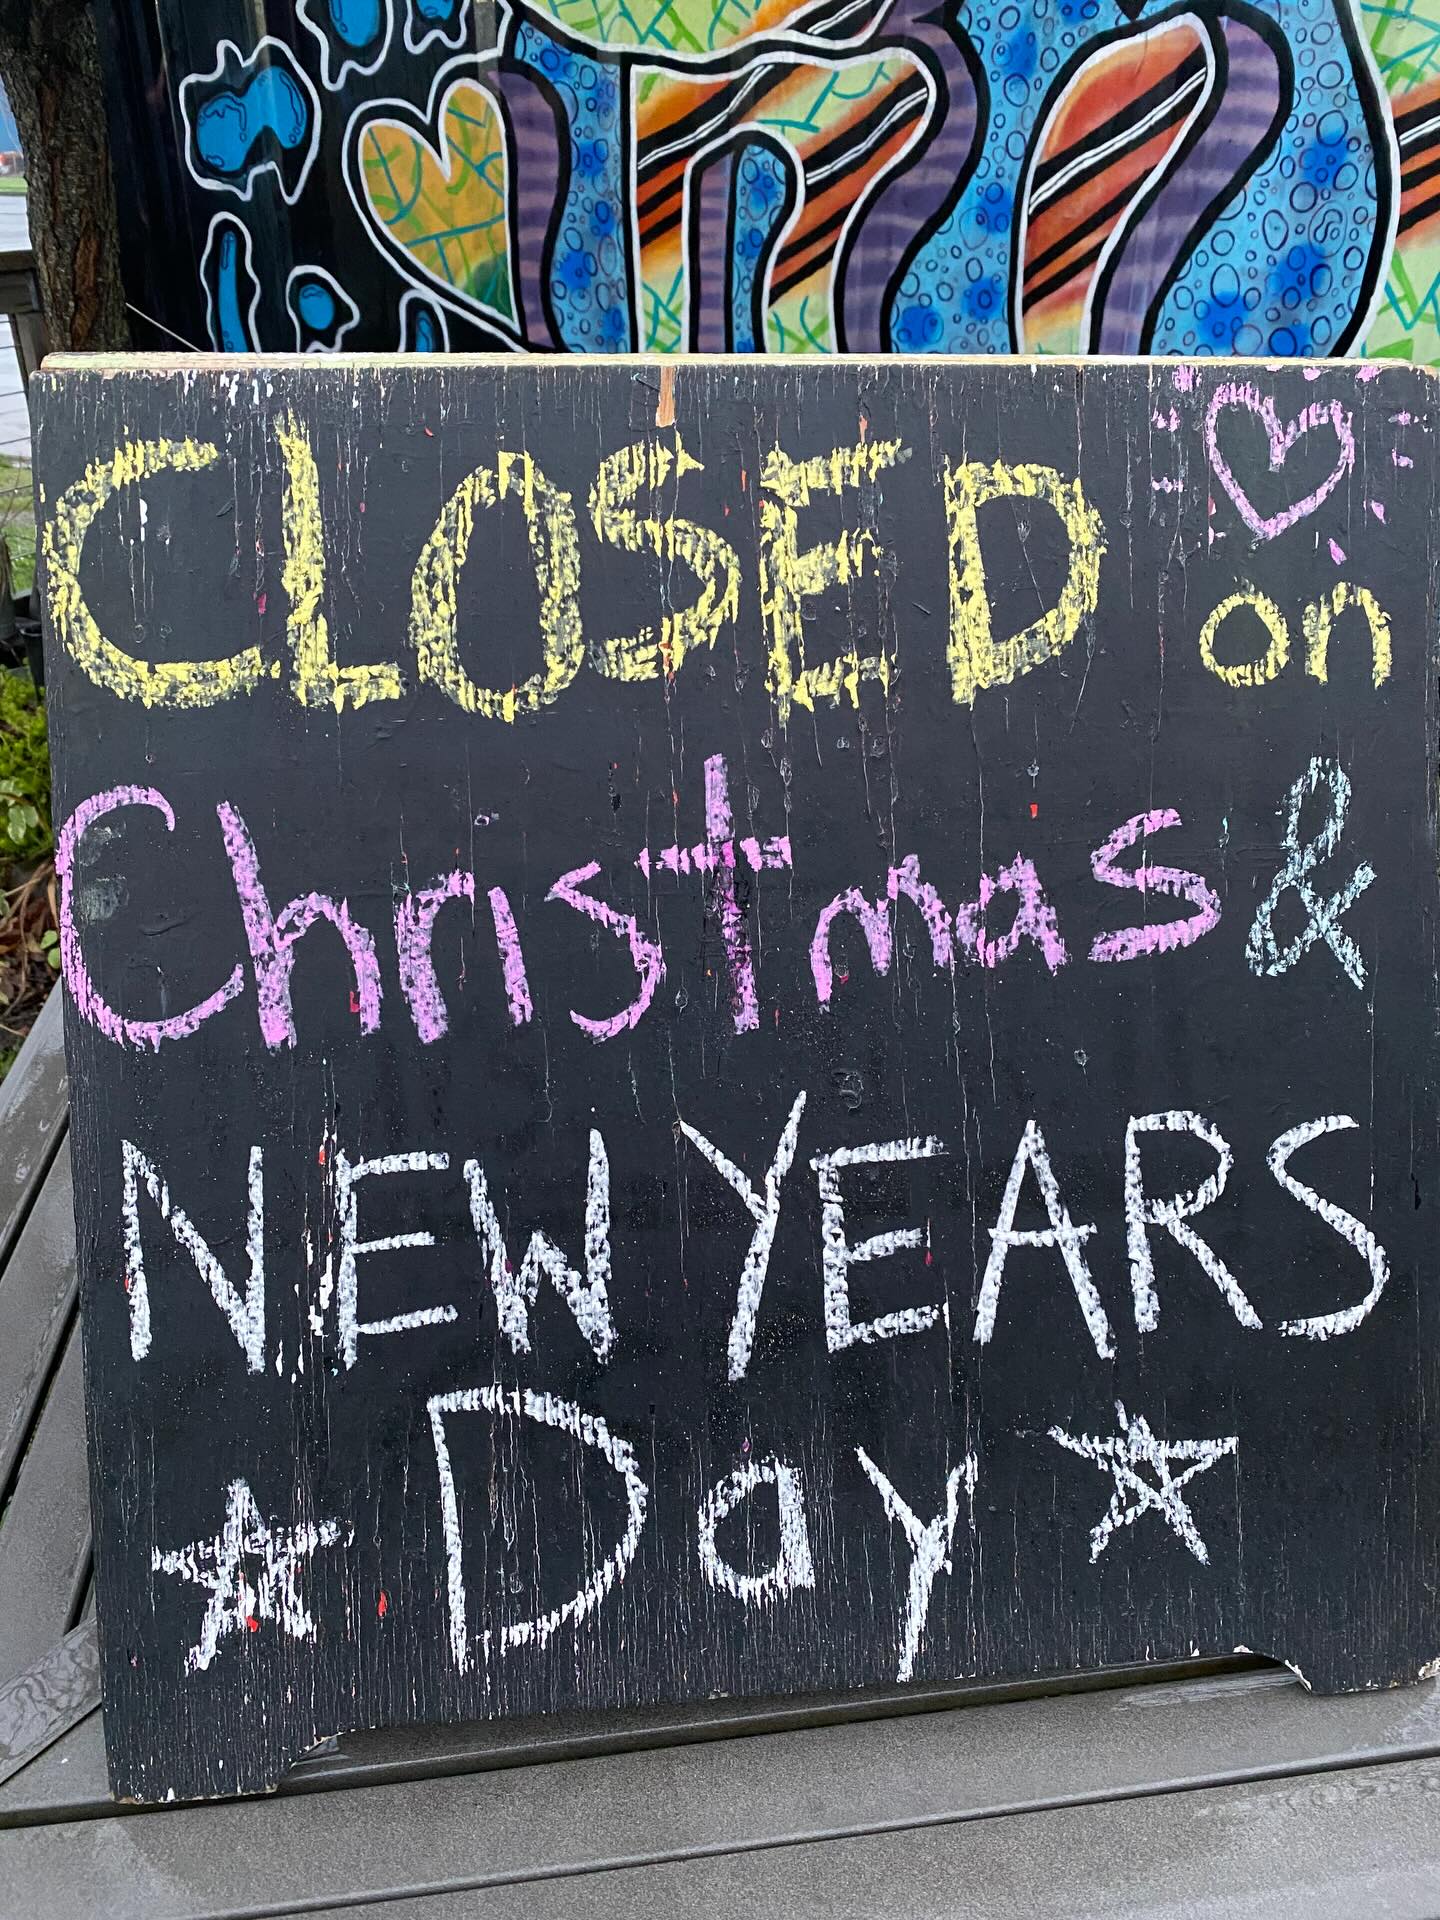 CLOSED on
Christmas &
NEW YEARS
Day